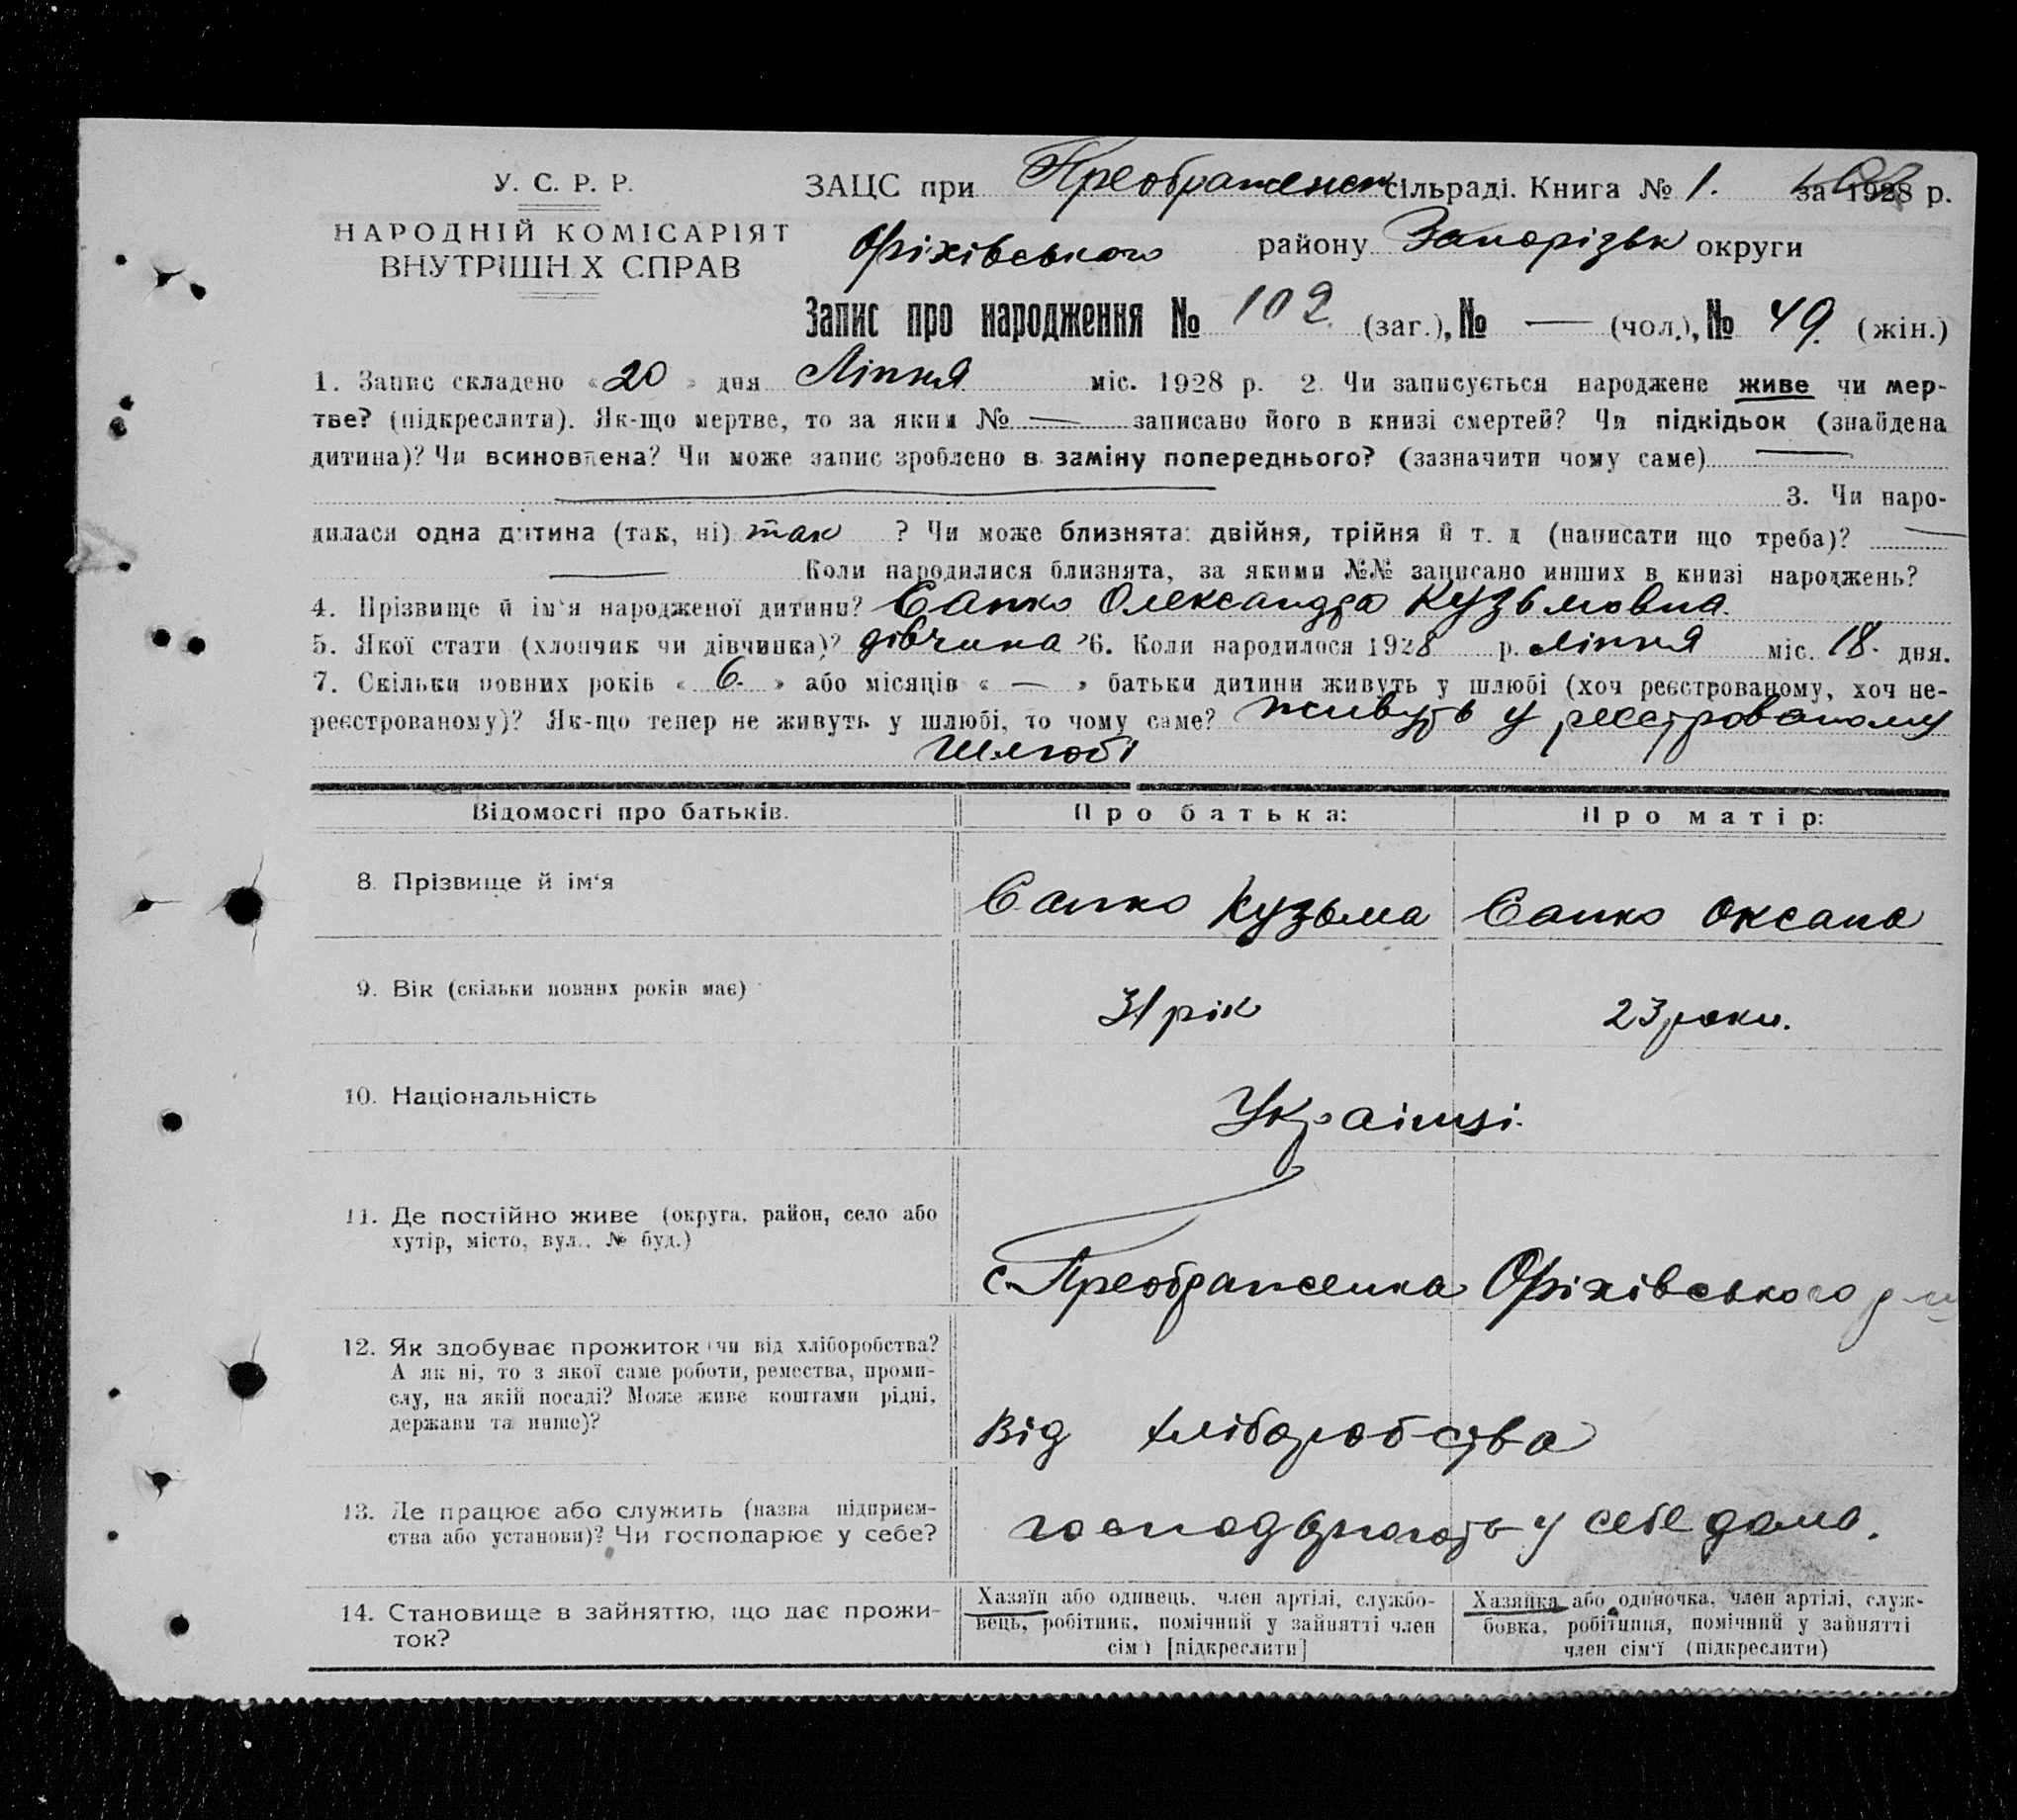 У. С. Р. Р.
НАРОДНІЙ КОМІСАРІЯТ
ВНУТРІШН Х СПРАВ
ЗАЦС при Преображенськ сільраді. Книга № 1. за 1928 р.
Оріхівського району Запорізьк округи
Запис про народження № 102 (заг.), № — (чол.), № 49. (жін.)
1. Запис складено «20» дня Ліпня міс. 1928 р. 2. Чи записується народжене живе чи мер-
тве? (підкреслити). Як-що мертве, то за яким № — записано його в книзі смертей? Чи підкідьок (знайдена
дитина)? Чи всиновлена? Чи може запис зроблено в заміну попереднього? (зазначити чому саме) —
— 3. Чи наро-
дилася одна дитина (так, ні) так ? Чи може близнята: двійня, трійня й т. д (написати що треба)? —
— Коли народилися близнята, за якими №№ записано инших в книзі народжень?
4. Прізвище й ім'я народженої дитини? Сапко Олександра Кузьмовна.
5. Якої стати (хлопчик чи дівчинка)? дівчина 6. Коли народилося 1928 р. ліпня міс. 18. дня.
7. Скільки повних років «6.» або місяців «—» батьки дитини живуть у шлюбі (хоч реєстрованому, хоч не-
реєстрованому)? Як-що тепер не живуть у шлюбі, то чому саме? живуть у реєстрованому
шлюбі
Відомості про батьків. Про батька: Про матір:
8. Прізвище й ім'я Сапко Кузьма Сапко Оксана
9. Вік (скільки повних років має) 31 рік 23 роки.
10. Національність Украінці.
11. Де постійно живе (округа, район, село або
хутір, місто, вул., № буд.)
с. Преображенка Оріхівського
12. Як здобуває прожиток (чи від хліборобства?
А як ні, то з якої саме роботи, ремества, проми-
слу, на якій посаді? Може живе коштами рідні,
держави та инше)?
Від хліборобства
13. Де працює або служить (назва підприєм-
ства або установи)? Чи господарює у себе?
господарюють у себе дома.
14. Становище в зайняттю, що дає прожи-
ток?
Хазяїн або одинець, член артілі, службо-
вець, робітник, помічний у зайнятті член
сім'ї [підкреслити]
Хазяйка або одиночка, член артілі, служ-
бовка, робітниця, помічний у зайнятті
член сім'ї (підкреслити)